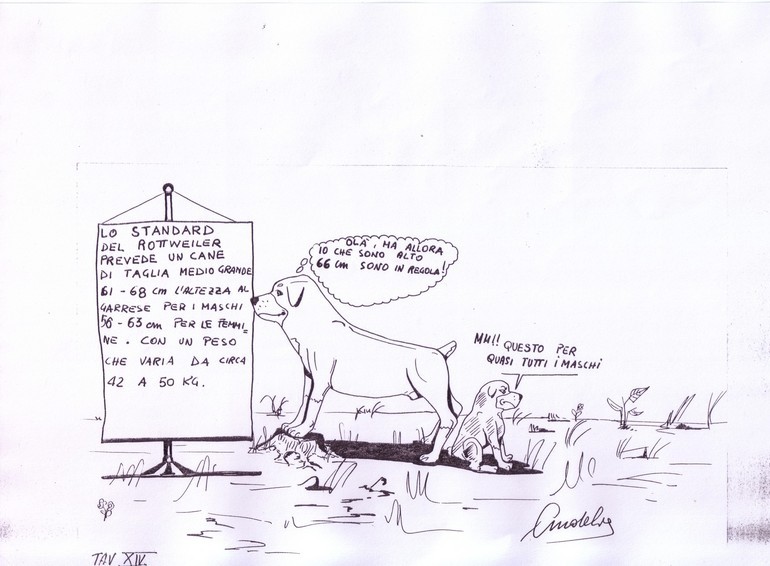 LO STANDARD
DEL ROTTWEILER
PREVEDE UN CANE
DI TAGLIA MEDIO GRANDE
61 - 68 cm L'ALTEZZA AL
GARRESE PER I MASCHI
56 - 63 cm PER LE FEMMI_
NE. CON UN PESO
CHE VARIA DA CIRCA
42 A 50 KG.
OLÀ, MA ALLORA
IO CHE SONO ALTO
66 cm SONO IN REGOLA!
MH!! QUESTO PER
QUASI TUTTI I MASCHI
TAV. XIV.